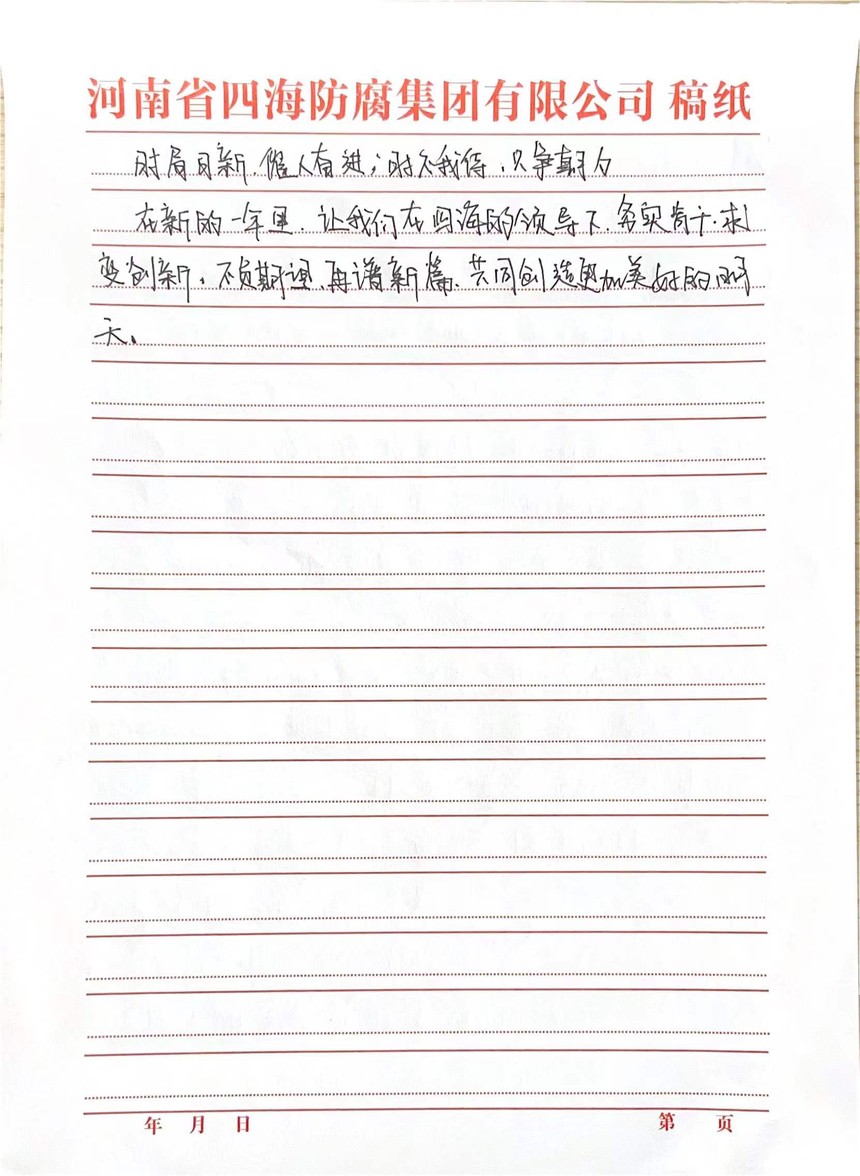 河南省四海防腐集团有限公司 稿纸
时局日新,催人奋进;时不我待,只争朝夕
在新的一年里,让我们在四海的领导下,务实肯干,求
变创新,不负期望,再谱新篇,共同创造更加美好的明
天。
年 月 日 第 页